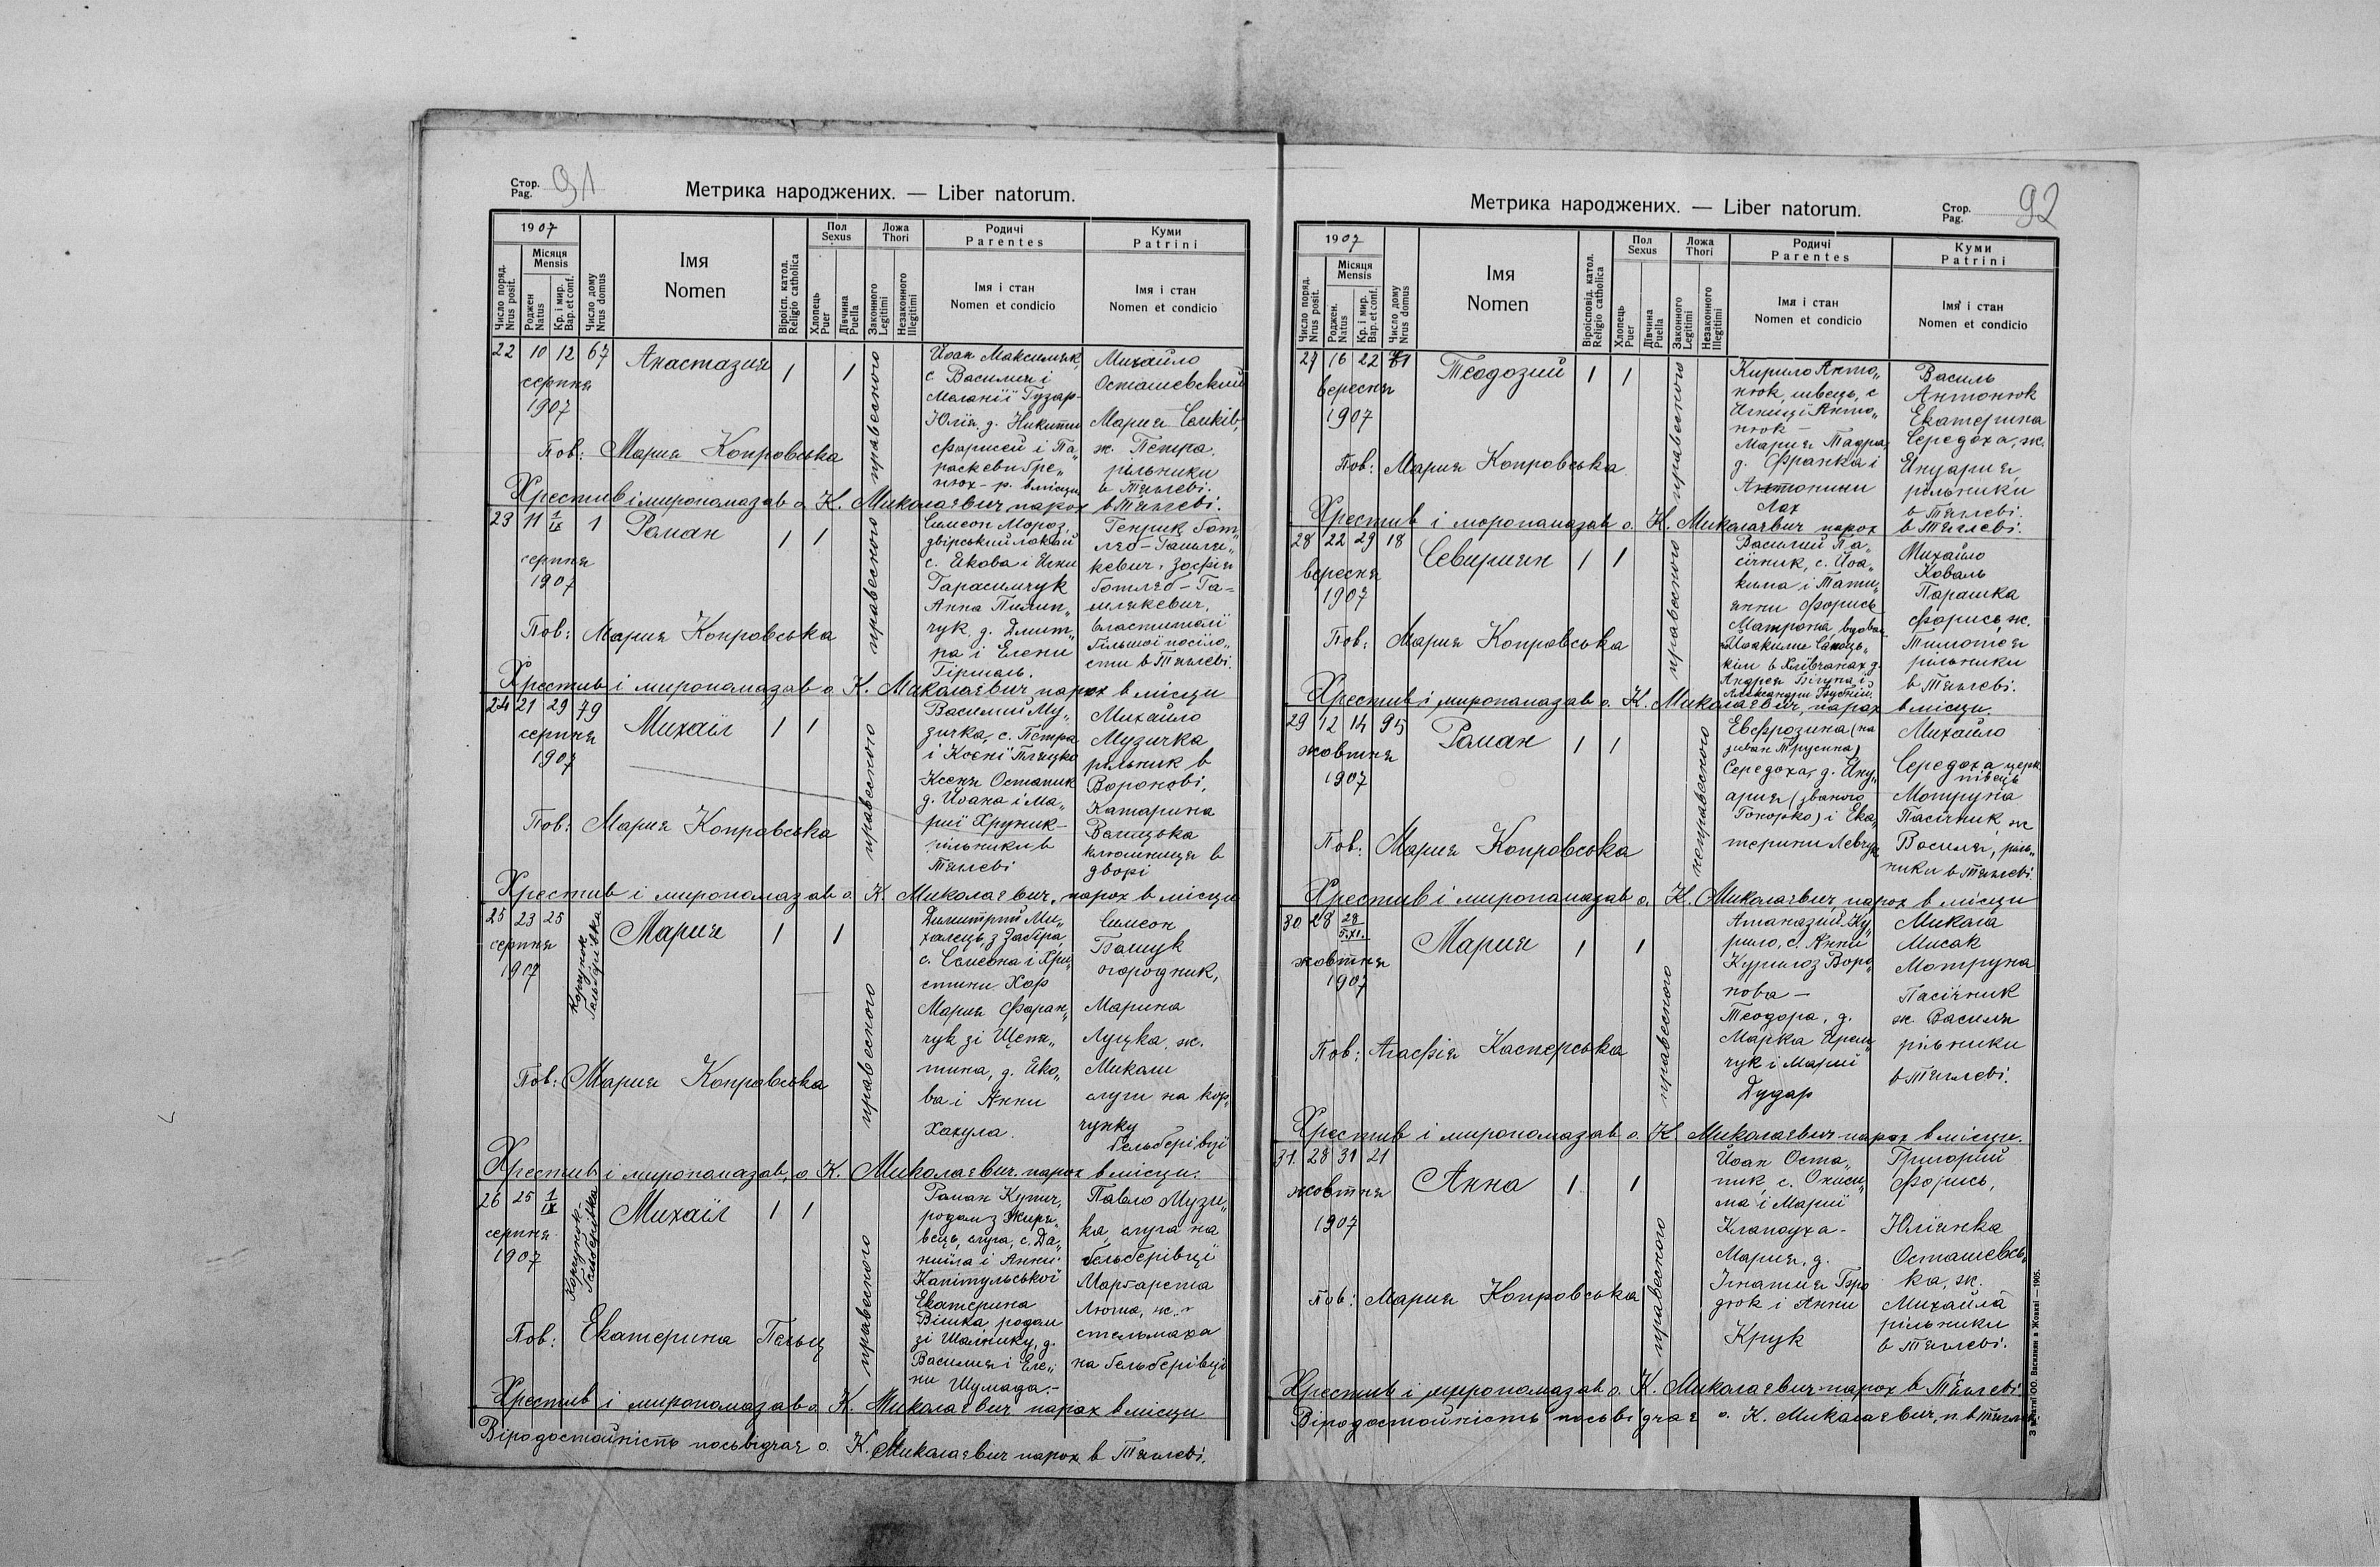 Стор.
Pag. 91
Метрика народжених. — Liber natorum.
1907
Число поряд.
Nrus posit.
Місяця
Mensis
Роджен
Natus
Кр. і мир.
Bap. et conf.
Число дому
Nrus domus
Імя
Nomen
Віроісп. катол.
Religio catholica
Пол
Sexus
Хлопець
Puer
Дівчина
Puella
Ложа
Thori
Законного
Legitimi
Незаконного
Illegitimi
Родичі
Parentes
Імя і стан
Nomen et condicio
Куми
Patrini
Імя і стан
Nomen et condicio
22 10 12 67
серпня
1907
Анастазия
1 1
правесного
Йоан Максимяк,
с Василия і
Меланії Гузар-
Юлія, д. Никити
Фарисей і Па„
раскеви Гре„
нюх - р. в місци
Михайло
Осташевский
Мария Сенків,
ж. Петра,
рільники
в Тяглеві.
Пов: Мария Копровська
Хрестив і миропомазав о. К. Миколаєвич парох в Тяглеві.
23 11 1/IX 1
серпня
1907
Роман
1 1
правесного
Симеон Мороз,
двірський локай
с. Якова і Анни
Тарасимчук
Анна Пилип„
чук, д. Дмит„
ра і Елени
Гірталь.
Генрик Гот„
ляб - Гашля„
кевич, Зосфія
Готляб - Га=
шлякевич,
властителі
більшої посіло„
сти в Тяглеві.
Пов: Мария Копровська
Хрестив і миропомазав о. К. Миколаєвич парох в місци
24 21 29 79
серпня
1907
Михаїл
1 1
правесного
Василий Му„
зичка, с. Петра
і Ксені Пляцко
Ксеня Остапик
д. Йоана і Ма„
рії Хруник -
рільники в
Тяглеві
Михайло
Музичка
рільник в
Воронові,
Катарина
Валицька
ключниця в
дворі
Пов: Мария Копровська
Хрестив і миропомазав о. К. Миколаєвич, парох в місци
25 23 25
серпня
1907
Корчунок
Гельберівка
Мария
1 1
правесного
Димитрий Ми„
халець, з Забіра,
с. Семеона і Хри„
стини Хар
Мария Фаран„
чук зі Щепя„
тина, д. Яко„
ва і Анни
Хахула.
Симеон
Бащук
огородник,
Марина
Луцка, ж.
Миколи
слуги на кор„
чунку
Гельберівці
Пов: Мария Копровська
Хрестив і миропомазав, о. К. Миколаєвич парох в місци.
26 25 1/IX
серпня
1907
Корчунок
Гельберівка
Михаїл
1 1
правесного
Роман Купич,
родом з Жиря„
вець, слуга, с. Да„
ниїла і Анни
Капітульської
Екатерина
Вішка, родом
зі Шалнику, д.
Василия і Еле„
ни Шумада. -
Павло Музи„
ка, слуга на
Гельберівці
Маргарета
Люта, ж.
стельмаха
на Гельберівці
Пов: Екатерина Пельц
Хрестив і миропомазав о. К. Миколаєвич парох в місци
Віродостойність посьвідчає о. К. Миколаєвич парох в Тяглеві.
Метрика народжених. — Liber natorum.
Стор.
Pag. 92
1907
Число поряд.
Nrus posit.
Місяця
Mensis
Роджен.
Natus
Кр. і мир.
Bap. et conf.
Число дому
Nrus domus
Імя
Nomen
Віроісповід. катол.
Religio catholica
Пол
Sexus
Хлопець
Puer
Дівчина
Puella
Ложа
Thori
Законного
Legitimi
Незаконного
Illegitimi
Родичі
Parentes
Імя і стан
Nomen et condicio
Куми
Patrini
Імя і стан
Nomen et condicio
27 16 22 71
вересня
1907
Теодозий
1 1
правесного
Кирило Анто„
нюк, швець, с
Ігниції Анто„
нюк -
Мария Тадра,
д. Франка і
Антонини
Лах
Василь
Антонюк
Екатерина
Середоха, ж.
Януария
рільники
в Тяглеві.
Пов: Мария Копровська
Хрестив і миропомазав о. К. Миколаєвич парох в Тяглеві.
28 22 29 18
вересня
1907
Севириян
1 1
правесного
Василий Па„
січник, с. Йоа„
кима і Тати„
янни Форись
Матрона, вдова
Йоакиме
кім в Хлівчанах, д.
Андрея Бігуна і
Александри
Михайло
Коваль
Парашка
Форись, ж.
Тимотея
рільники
в Тяглеві.
Пов: Мария Копровська
Хрестив і миропомазав о. К. Миколаєвич, парох в місци.
29 12 14 95
жовтня
1907
Роман
1 1
неправесного
Евфрозина (на
зиван Трусина)
Середоха, д. Яну„
ария (званого
Гонорко) і Ека„
терини Левчук
Михайло
Середоха церк.
півець
Мотруна
Пасічник, ж
Василя, ріль„
ники в Тяглеві.
Пов: Мария Копровська
Хрестив і миропамазав о. К. Миколаєвич, парох в місци
30 28 28/T.XI.
жовтня
1907
Мария
1 1
правесного
Атаназий Ку„
рило, с. Анни
Курило з Воро„
нова -
Теодора, д.
Марка Ярем„
чук і Марії
Дудар
Микола
Мисак
Мотруна
Пасічник
ж. Василя
рільники
в Тяглеві.
Пов: Агафія Касперська
Хрестив і миропомазав о. К. Миколаєвич парох в місци.
31. 28 31 21
жовтня
1907
Анна
1 1
правесного
Йоан Оста„
пик, с. Ониси„
ма і Марії
Клапоуха -
Мария, д.
Ігнатия Гро
дюк і Анни
Крук
Григорий
Форись,
Юліянка
Осташевсь„
ка, ж.
Михайла
рільники
в Тяглеві.
Пов: Мария Копровська
Хрестив і миропомазав о. К. Миколаєвич парох в Тяглеві
Віродостойність посьвідчає о. К. Миколаєвич, п. в Тяглеві
З печатні ОО. Василиян в Жовкві — 1905.